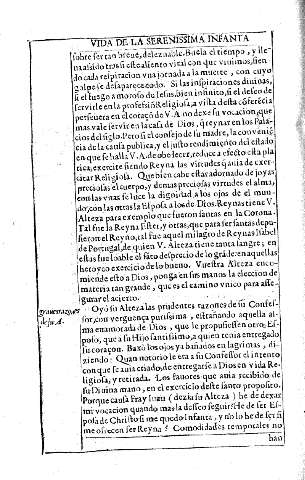 VIDA DE LA SERENISSIMA INFANTA
sobre ser tan breue, deleznable. Buela el tiempo, y lle-
ua asido tras si este aliento vital con que viuimos, sien-
do cada respiracion vna jornada a la muerte, con cuyo
golpe se desaparece todo. Si las inspiraciones diuinas,
si el fuego amoroso de Iesus, bien infinito, si el desseo de
seruirle en la professiō Religiosa, a vista desta cōferēcia
perseuera en el coraçō de V.A. no dexe su vocacion; que
mas vale seruir en la casa de Dios, q̄ reynar en los Pala-
cios del siglo. Pero si el consejo de su madre, la conueniē
cia de la causa publica, y el justo rendimiento del estado
en que se halla V. A. de obedecer, reduce a efecto esta pla
tica, exercite siendo Reyna las virtudes q̄ auia de exer-
citar Religiosa. Que bien cabe estar adornado de joyas
preciosas el cuerpo, y de mas preciosas virtudes el alma,
con las vnas se luce la dignidad, a los ojos de el mun-
do, con las otras la Esposa a los de Dios. Reynas tiene V.
Alteza para exemplo que fueron santas en la Corona.
Tal fue la Reyna Ester, y otras, que para ser santas depu-
sieron el Reyno, tal fue aquel milagro de Reynas Isabel
de Portugal, de quien V. Alteza tiene tanta sangre; en
estas fue loable el
heroyco exercicio de lo bueno. Vuestra Alteza enco-
miende esto a Dios, ponga en sus manos la eleccion de
materia tan grande, que es el camino vnico para asse-
gurar el acierto.
Oyó su Alteza las prudentes razones de su Confes-
sor, con verguença purissima, estrañando aquella al-
ma enamorada de Dios, que le propusiessen otro Es-
poso, que a su Hijo santissimo, a quien tenia entregado
su coraçon. Baxó los ojos ya bañados en lagrimas, di-
ziendo: Quan notorio le era a su Confessor el intento
con que se auia criado, de entregarse a Dios en vida Re-
ligiosa, y retirada. Los fauores que auia recibido de
su Diuina mano, en el exercicio deste santo proposito.
Porque causa Fray Iuan (dezia su Alteza) he de dexar
mi vocacion quando mas la desseo seguir? He de ser Es-
posa de Christo si me quedo Infanta, y no lo he de ser si
me ofrecen ser Reyna? Comodidades temporales no
han
de su A.